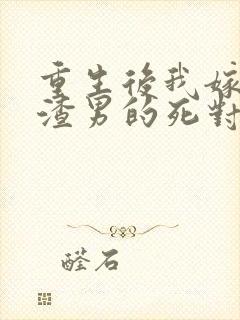 重生後我嫁
渣男的死對
醛石